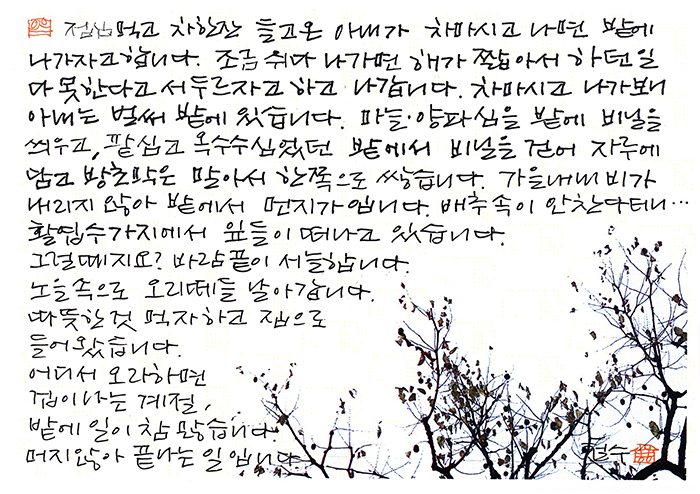 점심먹고 차한잔 들고온 아내가 차마시고 나면 밭에
나가자고합니다. 조금 쉬다 나가면 해가 짧아서 하던일
다 못한다고 서두르자고 하고 나갑니다. 차마시고 나가보니
아내는 벌써 밭에 있습니다. 마늘·양파심을 밭에 비닐을
씌우고, 팥심고 옥수수심었던 밭에서 비닐을 걷어 자루에
담고 방초막은 말아서 한쪽으로 쌓습니다. 가을내내 비가
내리지 않아 밭에서 먼지가 입니다. 배추속이 안찬다더니…
활엽수가지에서 잎들이 떠나고 있습니다.
그럴때지요? 바람끝이 서늘합니다.
노을속으로 오리떼들 날아갑니다.
따뜻한것 먹자하고 집으로
들어왔습니다.
어디서 오라하면
겁이나는 계절,
밭에 일이 참 많습니다.
머지않아 끝나는 일입니다.
철수